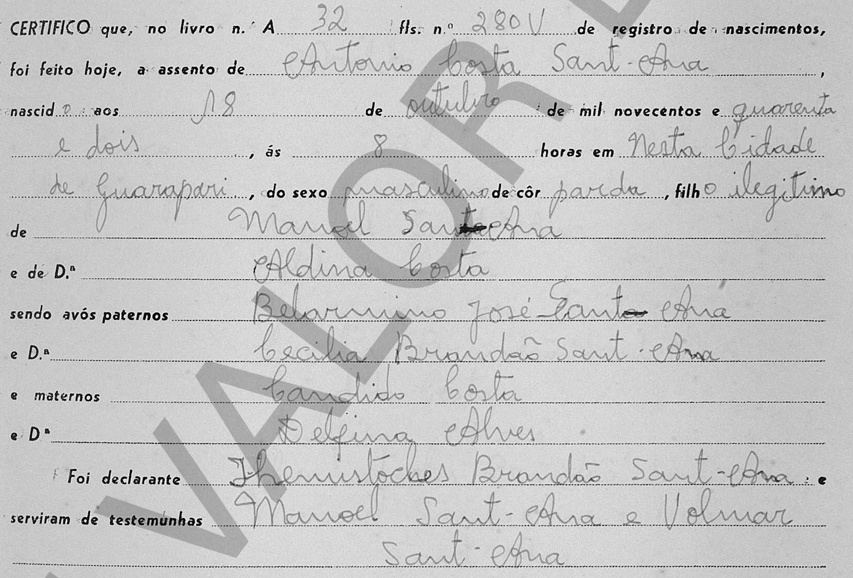 CERTIFICO que, no livro n.º A 32 fls. n.º 280V de registro de nascimentos,
foi feito hoje, a assento de Antonio Costa Sant-Ana,
nascido aos 18 de outubro de mil novecentos e quarenta
e dois, ás 8 horas em Nesta Cidade
de Guarapari, do sexo masculino de côr parda, filho ilegitimo
de Manoel Sant-Ana
e de D.ª Aldina Costa
sendo avós paternos Belarmino José Sant-Ana
e D.ª Cecilia Brandão Sant-Ana
e maternos Candido Costa
e Dª Delfina Alves
Foi declarante Themistocles Brandão Sant-Ana e
serviram de testemunhas Manoel Sant-Ana e Volmar
Sant-Ana
VALOR